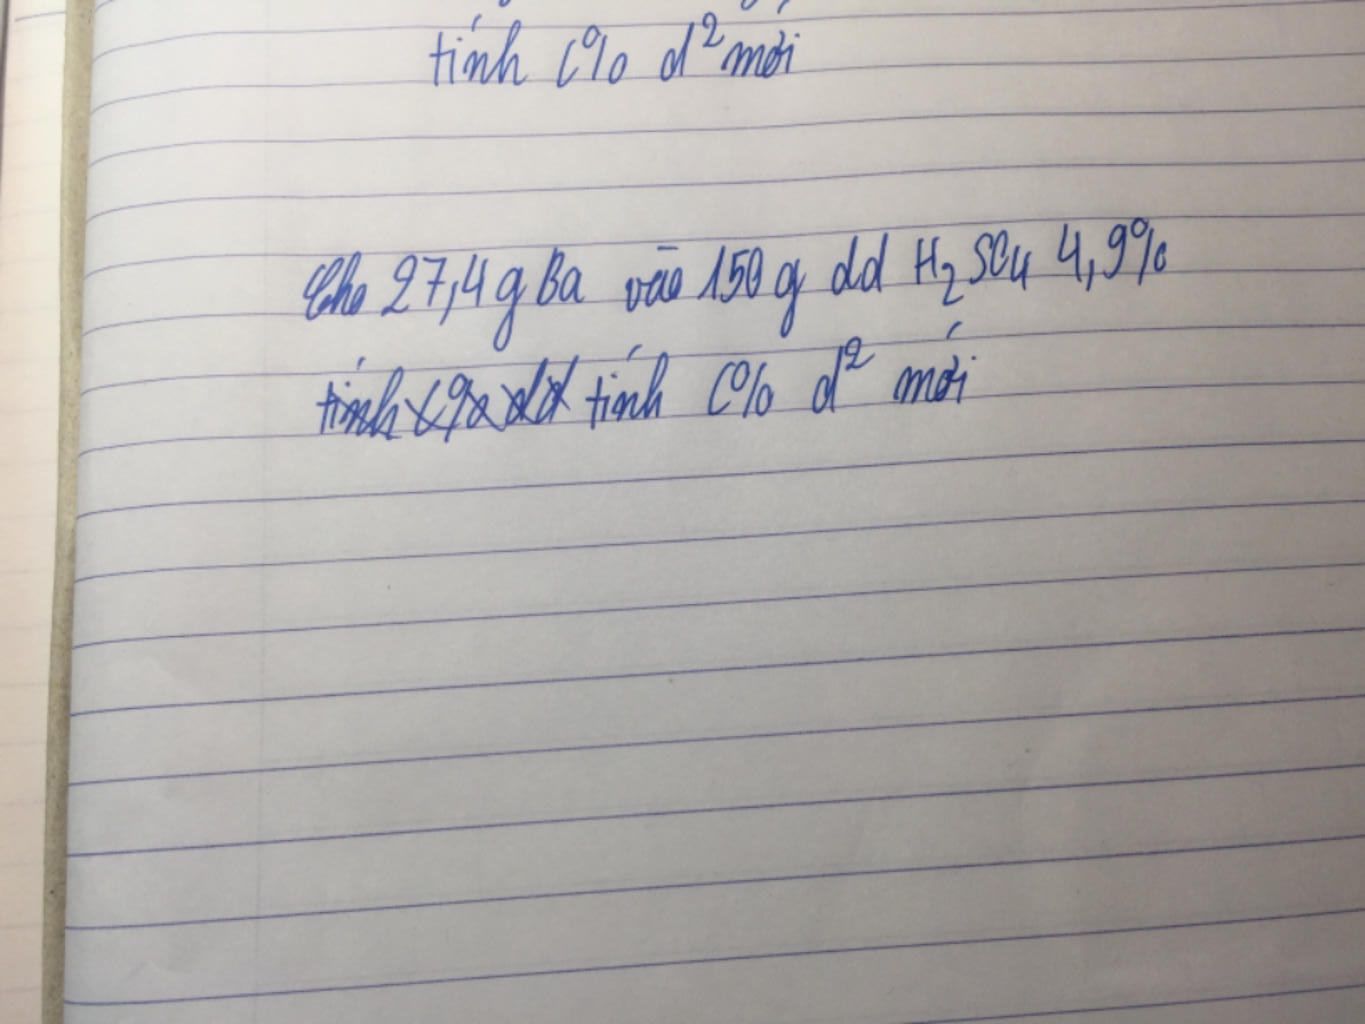 tính C% d² mới
Cho 27,4 g Ba vào 150 g dd H₂SO₄ 4,9%
tính C% dd tính C% d² mới